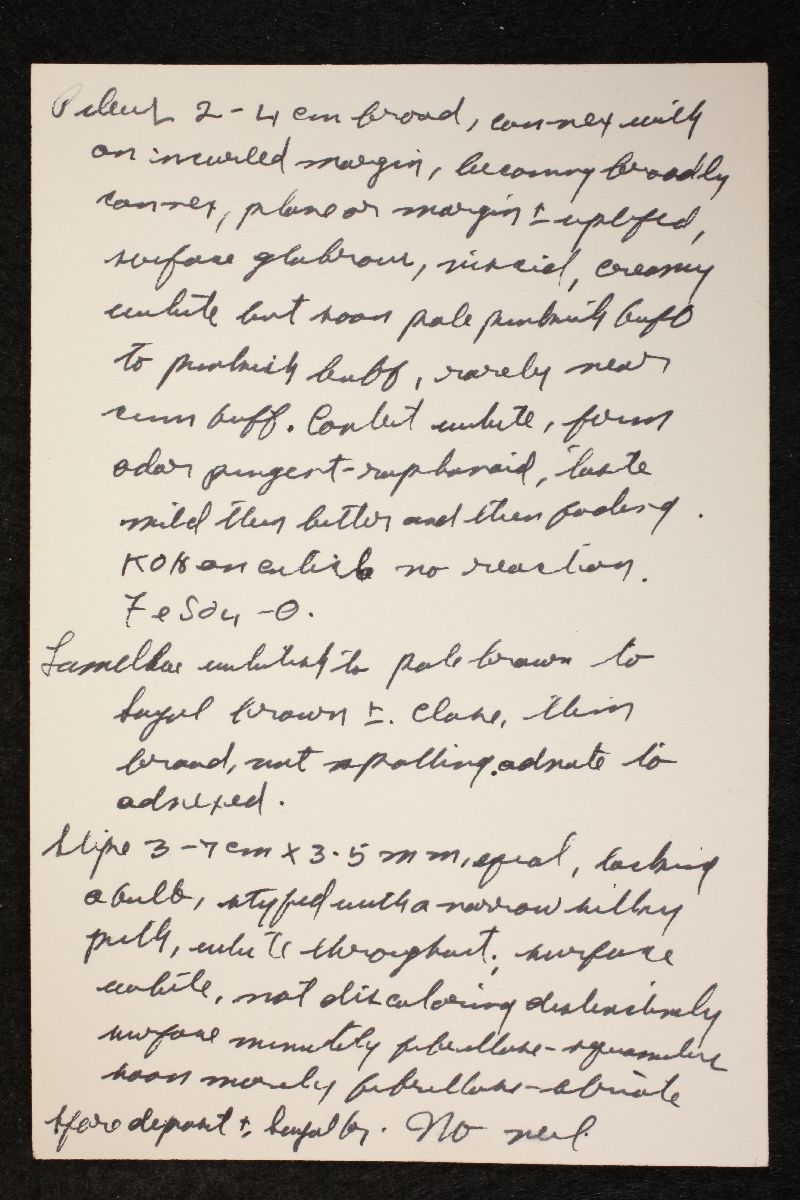 Pileus 2-4 cm broad, convex with
an incurled margin, becoming broadly
convex, plane or margin ± uplifted,
surface glabrous, viscid, creamy
white but soon pale pinkish buff
to pinkish buff, rarely near
cinn buff. Context white, firm
odor pungent-raphanoid, taste
mild then bitter and then fading.
KOH on cuticle no reaction.
FeSO4 -0.
Lamellae whitish to pale brown to
Sayal brown ±. Close, thin
broad, not spotting. adnate to
adnexed.
Stipe 3-7 cm x 3-5 mm, equal, lacking
a bulb, stuffed with a narrow silky
pith, white throughout; surface
white, not discoloring distinctively
surface minutely fibrillose-squamulose
soon merely fibrillose-striate
Spore deposit ± Sayal br. No veil.